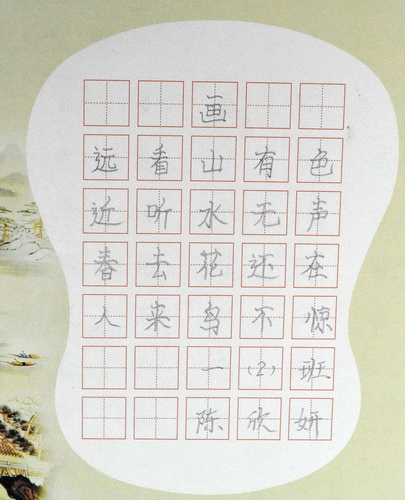 画
远看山有色
近听水无声
春去花还在
人来鸟不惊
一(2)班
陈欣妍